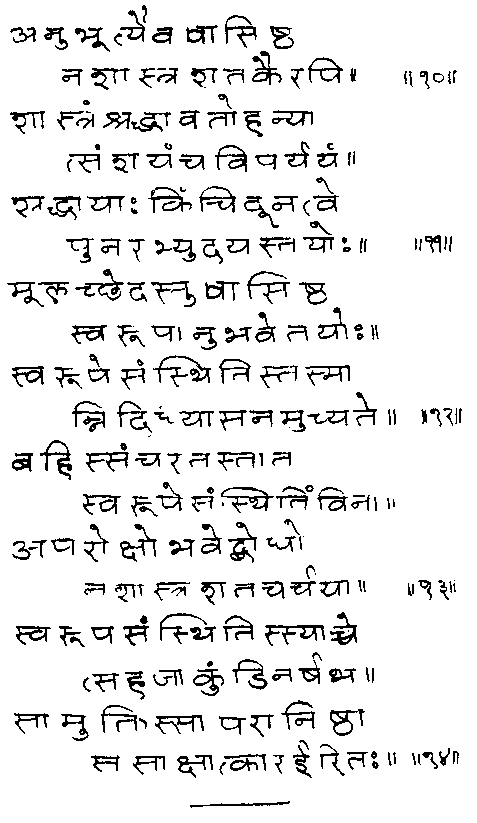 अनुभूत्यैव वासिष्ठ
न शास्त्रशतकैरपि॥ ॥१०॥
शास्त्रं श्रद्धावतो हन्या
त्संशयंच विपर्ययं॥
श्रद्धायाः किंचिदूनत्वे
पुनरभ्युदयस्तयोः॥ ॥११॥
मूलच्छेदस्तु वासिष्ठ
स्वरूपानुभवे तयोः॥
स्वरूपे संस्थितिस्तस्मा
न्निदिध्यासनमुच्यते॥ ॥१२॥
बहिस्संचरतस्तात
स्वरूपे संस्थितिं विना॥
अपरोक्षो भवेद्बोधो
न शास्त्रशतचर्चया॥ ॥१३॥
स्वरूपसंस्थितिस्स्याच्चे
त्सहजा कुंडिनर्षभ॥
सा मुक्तिस्सा परा निष्ठा
स साक्षात्कार ईरितः॥ ॥१४॥